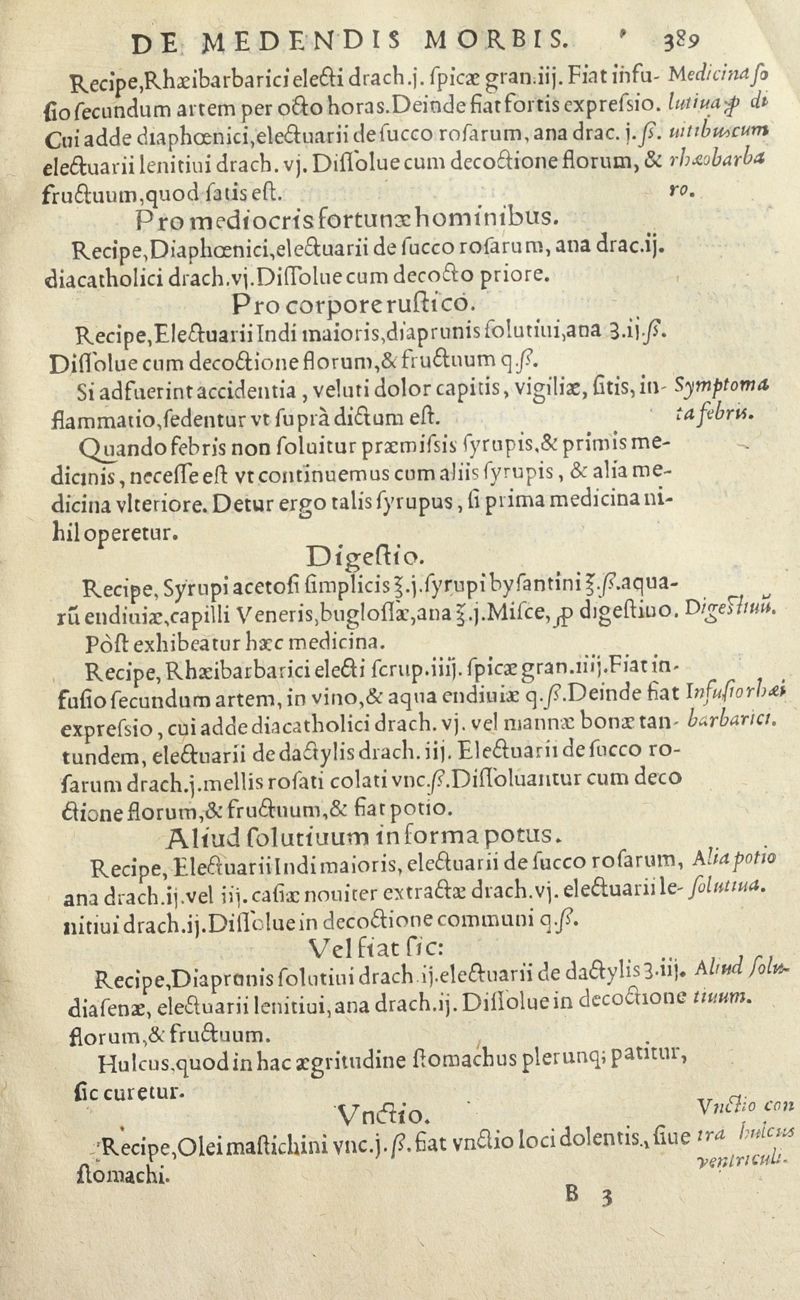 DE MEDENDIS MORBIS. 389
Recipe,Rhæibarbarici electi drach.j. spicæ gran.iij. Fiat infu- Medicina so
sio secundum artem per octo horas.Deinde fiat fortis expressio. lutiua ꝓ di
Cui adde diaphœnici,electuarii de succo rosarum, ana drac. j.ß. uitibuscum
electuarii lenitiui drach. vj. Dissolue cum decoctione florum, & rhæobarba
fructuum,quod satis est. ro.
Pro mediocris fortunæ hominibus.
Recipe,Diaphœnici,electuarii de succo rosarum, ana drac.ij.
diacatholici drach.vj.Dissolue cum decocto priore.
Pro corpore rustico.
Recipe,Electuarii Indi maioris,diaprunis solutiui,ana ʒ.ij.ß.
Dissolue cum decoctione florum,& fructuum q.ß.
Si adfuerint accidentia , veluti dolor capitis, vigiliæ, sitis, in- Symptoma
flammatio,sedentur vt suprà dictum est. ta febris.
Quando febris non soluitur præmissis syrupis,& primis me-
dicinis, necesse est vt continuemus cum aliis syrupis, & alia me-
dicina vlteriore. Detur ergo talis syrupus, si prima medicina ni-
hil operetur.
Digestio.
Recipe, Syrupi acetosi simplicis ℥.j.syrupi bysantini ℥.ß.aqua-
rū endiuiæ,capilli Veneris,buglossæ,ana ℥.j.Misce,ꝓ digestiuo. Digestiuū.
Pòst exhibeatur hæc medicina.
Recipe, Rhæibarbarici electi scrup.iiij. spicæ gran.iiij.Fiat in-
fusio secundum artem, in vino,& aqua endiuiæ q.ß.Deinde fiat Infusio rhæi
expressio, cui adde diacatholici drach. vj. vel mannæ bonæ tan- barbarici.
tundem, electuarii de dactylis drach. iij. Electuarii de succo ro-
sarum drach.j.mellis rosati colati vnc.ß.Dissoluantur cum deco
ctione florum,& fructuum,& fiat potio.
Aliud solutiuum in forma potus.
Recipe, Electuarii Indi maioris, electuarii de succo rosarum, Alia potio
ana drach.ij.vel iij. casiæ nouiter extractæ drach.vj. electuarii le- solutiua.
nitiui drach.ij.Dissolue in decoctione communi q.ß.
Vel fiat sic:
Recipe,Diaprunis solutiui drach.ij.electuarii de dactylis ʒ.iij. Aliud solu-
diasenæ, electuarii lenitiui, ana drach.ij. Dissolue in decoctione tiuum.
florum,& fructuum.
Hulcus,quod in hac ægritudine stomachus plerunq; patitur,
sic curetur.
Vnctio. Vnctio con
Recipe,Olei mastichini vnc.j.ß.fiat vnctio loci dolentis, siue tra hulcus
stomachi. ventriculi.
B 3